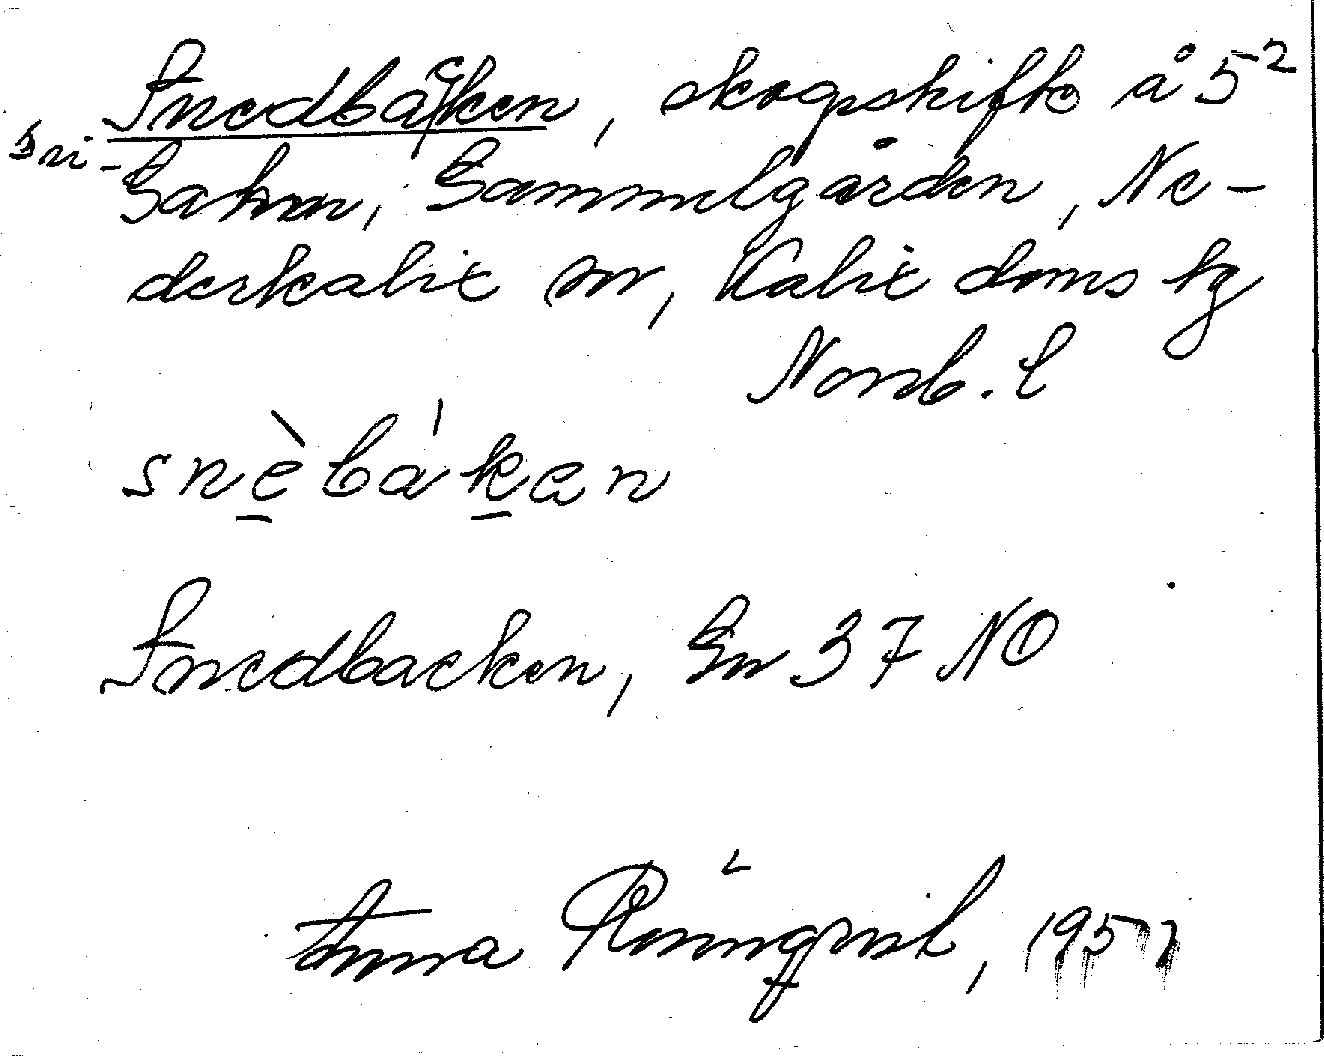 Snedbacken, skogskifte å 5²
Gammelgården, Ne-
derkalix sn, Kalix doms tg
Norrb. l
snèbákan
Snedbacken, Gn 37 NO
Anna Rönnqvist, 1957